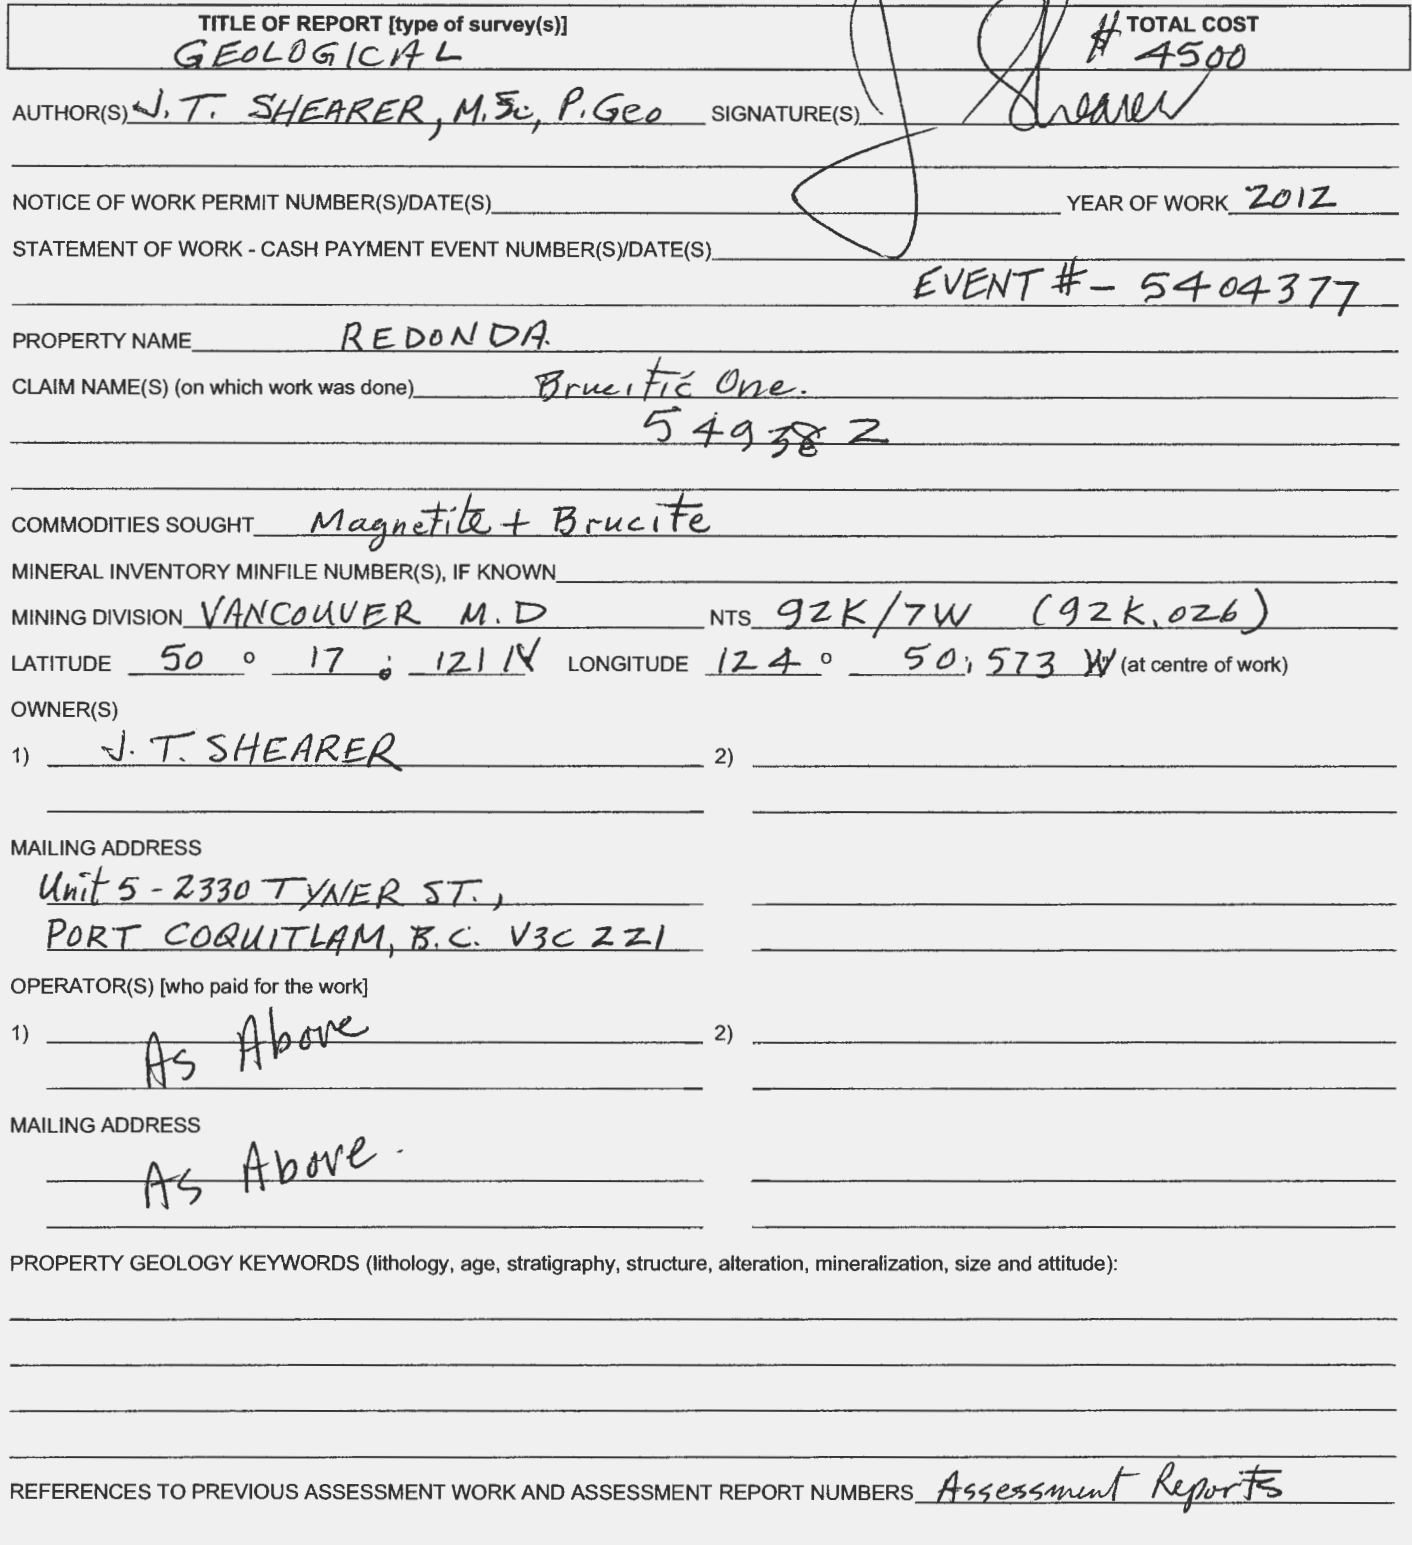 TITLE OF REPORT [type of survey(s)] TOTAL COST
GEOLOGICIAL # 4500
AUTHOR(S) J. T. SHEARER, M.Sc, P.Geo SIGNATURE(S) J Shearer
NOTICE OF WORK PERMIT NUMBER(S)/DATE(S) YEAR OF WORK 2012
STATEMENT OF WORK - CASH PAYMENT EVENT NUMBER(S)/DATE(S)
EVENT # - 5404377
PROPERTY NAME REDONDA
CLAIM NAME(S) (on which work was done) Brucitic One.
549382
COMMODITIES SOUGHT Magnetite + Brucite
MINERAL INVENTORY MINFILE NUMBER(S), IF KNOWN
MINING DIVISION VANCOUVER M.D NTS 92K/7W (92K.026)
LATITUDE 50 ° 17 . 121 N LONGITUDE 124 ° 50 ; 573 W (at centre of work)
OWNER(S)
1) J. T. SHEARER 2)
MAILING ADDRESS
Unit 5 - 2330 TYNER ST.,
PORT COQUITLAM, B.C. V3C 2Z1
OPERATOR(S) [who paid for the work]
1) As Above 2)
MAILING ADDRESS
As Above.
PROPERTY GEOLOGY KEYWORDS (lithology, age, stratigraphy, structure, alteration, mineralization, size and attitude):
REFERENCES TO PREVIOUS ASSESSMENT WORK AND ASSESSMENT REPORT NUMBERS Assessment Reports